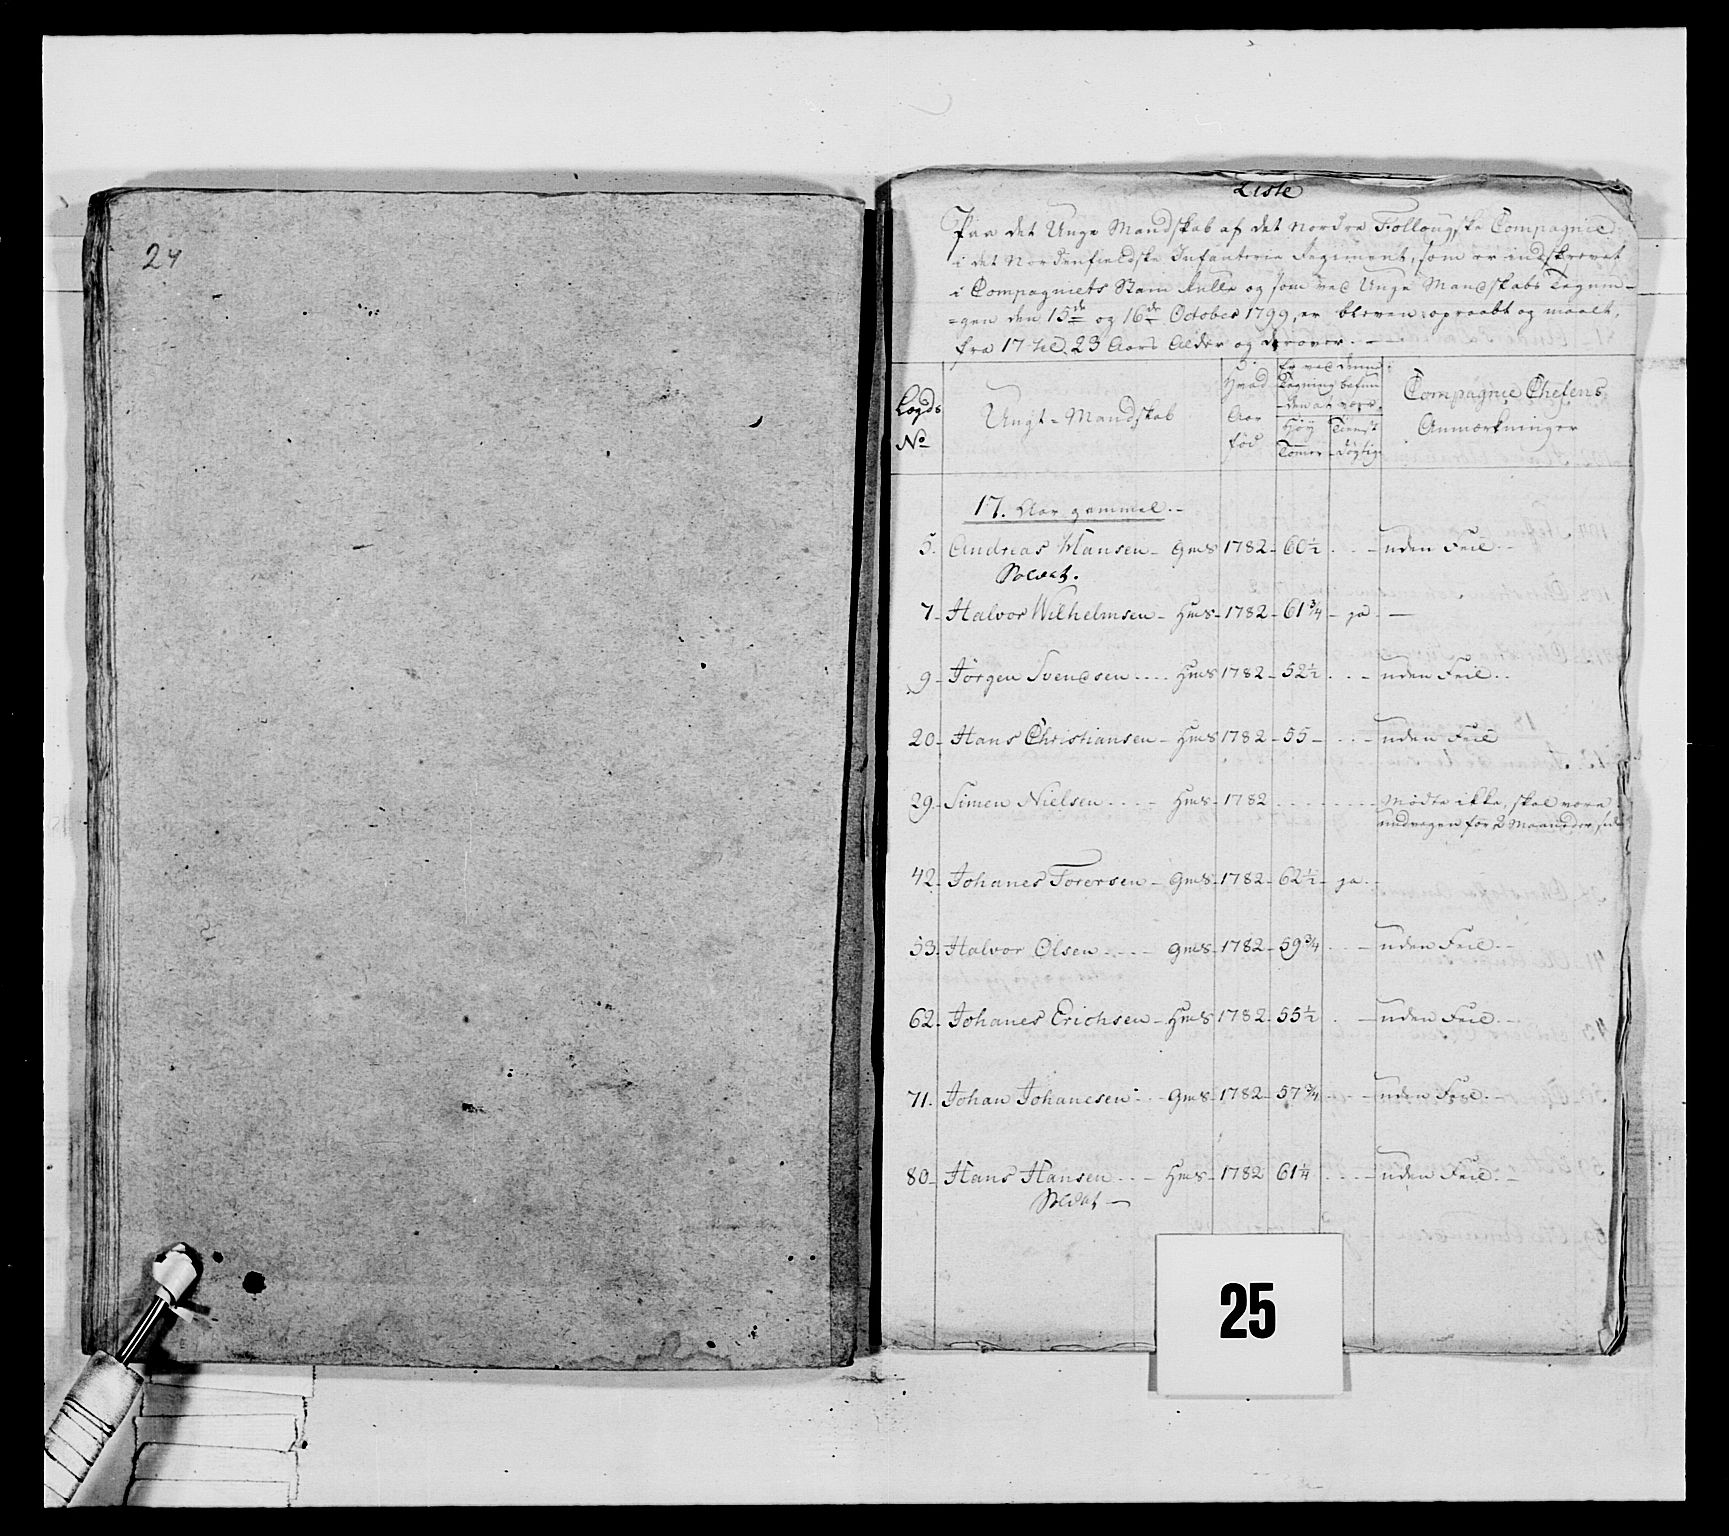 24
Liste
Paa det Unge Mandskab af det Nordre Follougske Compagnie
i det Nordenfieldske Infanterie Regiment, som er indskrevet
i Compagniets Stam Rulle og som ved Unge Mandskabs Tegnin-
=gen den 15de og 16de October 1799, er bleven opraabt og maalt,
fra 17 til 23 Aars Alder og derover.
Lægds No
Ungt=Mandskab
Hvad Aar fød
Er ved denne Tegning befunden at være
Høy Tomer
Tienst dygtig
Compagnie Chefens Anmærkninger
17. Aar gammel.
5. Andreas Hansen - Gms 1782 - 60½ - uden Feil.
Soldat.
7 - Halvor Wilhelmsen - Hms - 1782 - 61¾ - ja -
9 - Jörgen Svendsen Hms 1782 - 52½ - uden Feil.
20 - Hans Christiansen - Hms 1782 - 55 - uden Feil
29 - Simen Nielsen Hms - 1782 Mødte ikke, skal være
undvegen for 2 Maaneder
42 - Johanes - Gms - 1782 - 62½ - ja
53. Halvor Olsen Gms - 1782 - 59¾ - uden Feil.
62 - Johanes Erichsen - Hms 1782 - 55½ - uden Feil.
71. Johan Johanesen Gms - 1782 - 57¾ - uden Feil.
80 - Hans Hansen Hms - 1782 61¼ - uden Feil.
Soldat -
25